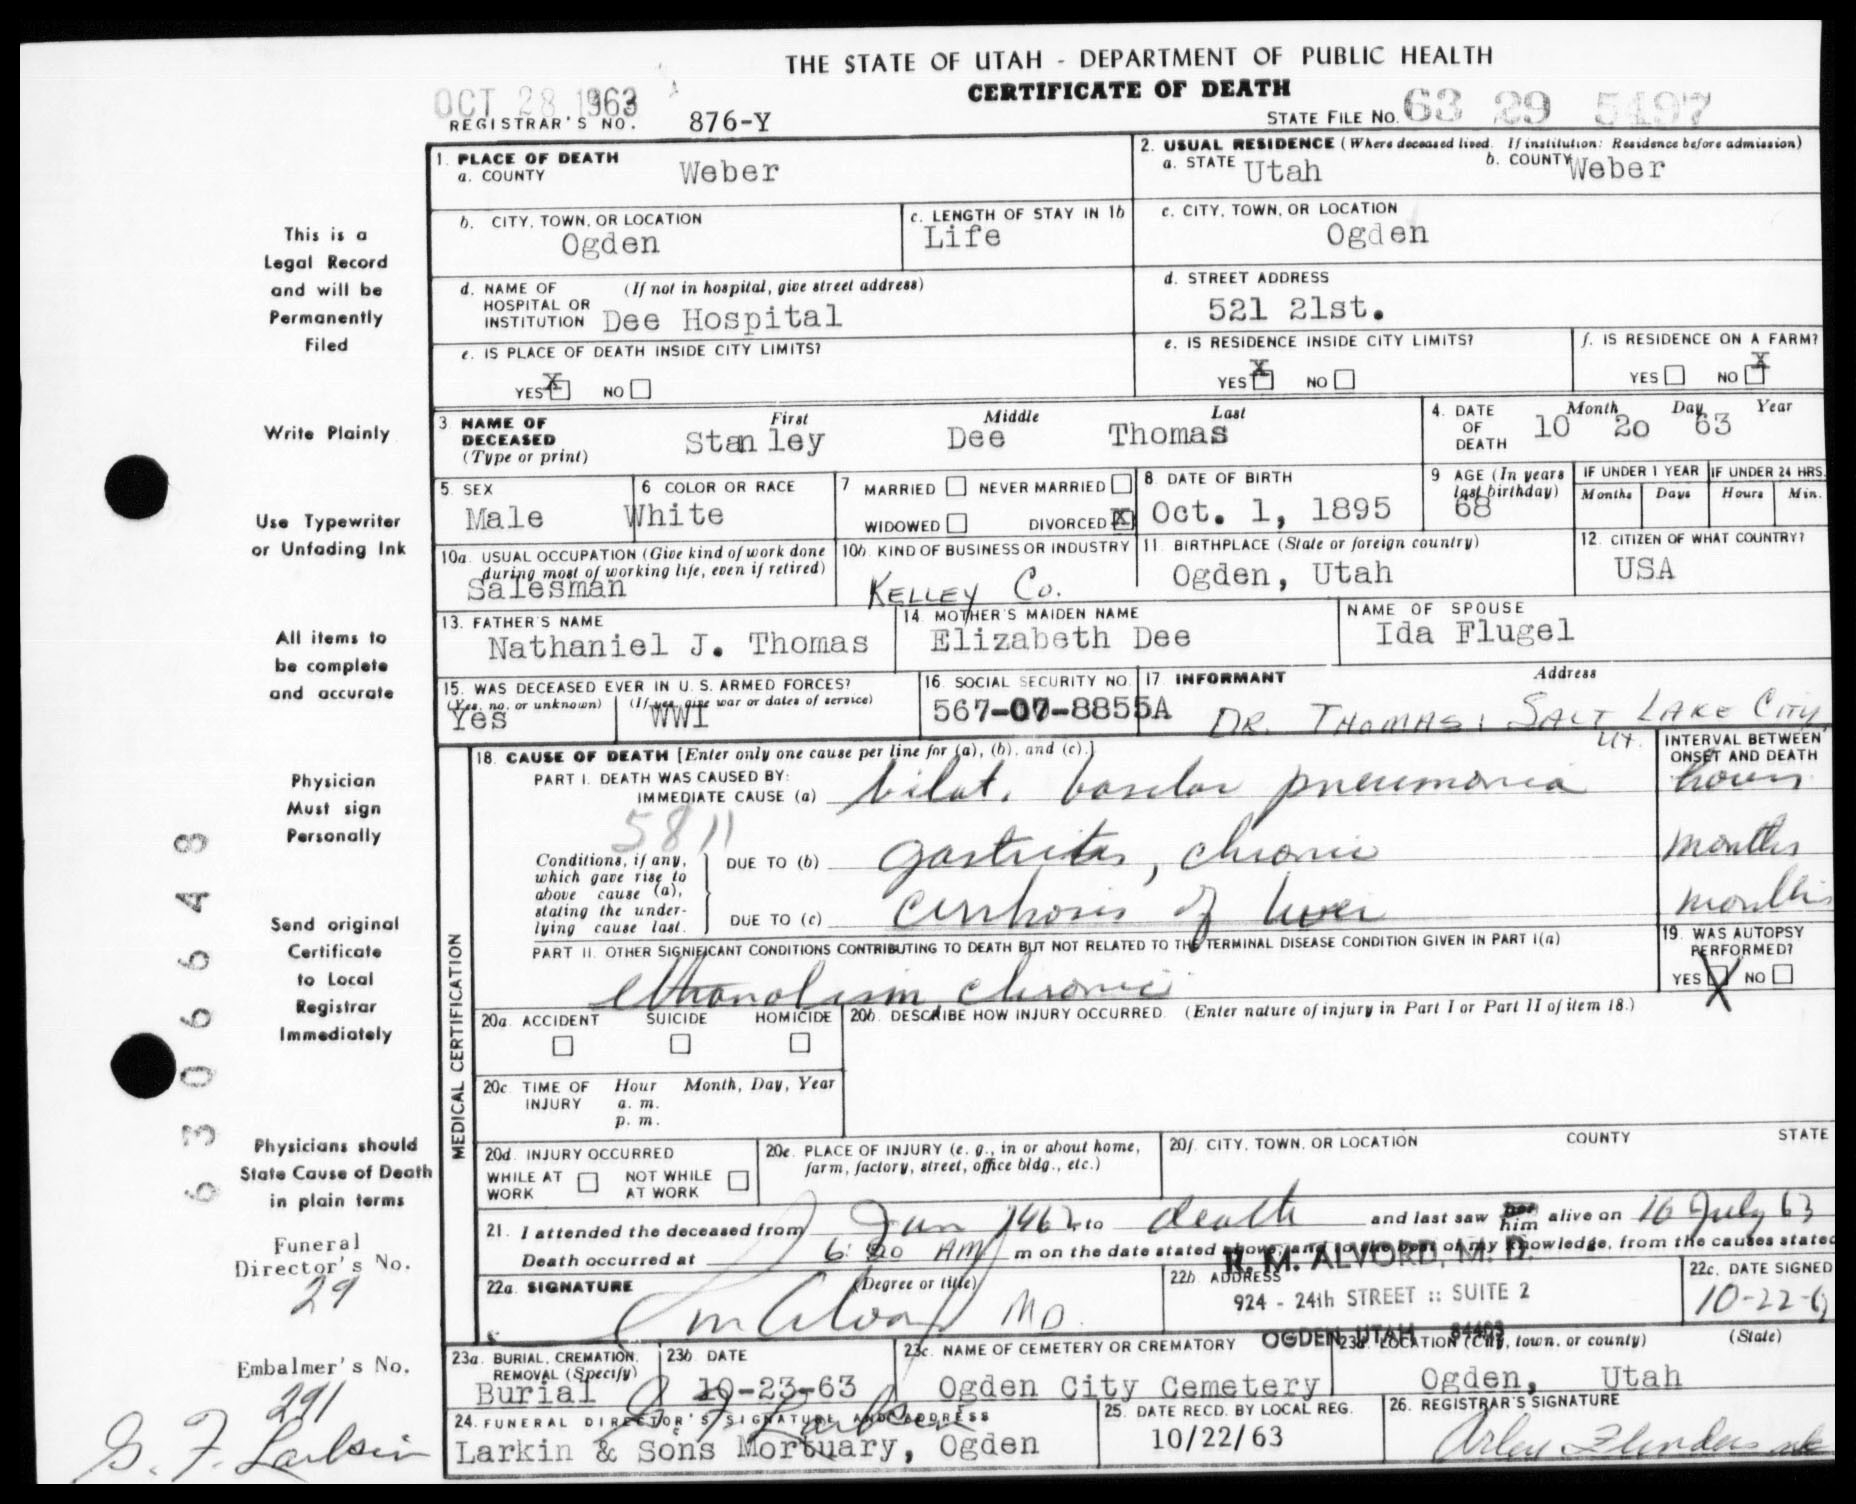 THE STATE OF UTAH - DEPARTMENT OF PUBLIC HEALTH
CERTIFICATE OF DEATH
OCT 28 1963
REGISTRAR'S NO. 876-Y
STATE FILE NO. 63 29 5497
1. PLACE OF DEATH
a. COUNTY Weber
2. USUAL RESIDENCE (Where deceased lived. If institution: Residence before admission)
a. STATE Utah b. COUNTY Weber
b. CITY, TOWN, OR LOCATION
Ogden
c. LENGTH OF STAY IN 1b
Life
c. CITY, TOWN, OR LOCATION
Ogden
d. NAME OF HOSPITAL OR INSTITUTION (If not in hospital, give street address)
Dee Hospital
d. STREET ADDRESS
521 21st.
e. IS PLACE OF DEATH INSIDE CITY LIMITS?
YES X NO
e. IS RESIDENCE INSIDE CITY LIMITS?
YES X NO
f. IS RESIDENCE ON A FARM?
YES NO X
3. NAME OF DECEASED (Type or print)
First Middle Last
Stanley Dee Thomas
4. DATE OF DEATH
Month Day Year
10 20 63
5. SEX
Male
6 COLOR OR RACE
White
7 MARRIED NEVER MARRIED
WIDOWED DIVORCED X
8 DATE OF BIRTH
Oct. 1, 1895
9 AGE (In years last birthday)
68
IF UNDER 1 YEAR
Months Days
IF UNDER 24 HRS.
Hours Min.
10a. USUAL OCCUPATION (Give kind of work done during most of working life, even if retired)
Salesman
10b. KIND OF BUSINESS OR INDUSTRY
KELLEY Co.
11. BIRTHPLACE (State or foreign country)
Ogden, Utah
12. CITIZEN OF WHAT COUNTRY?
USA
13. FATHER'S NAME
Nathaniel J. Thomas
14. MOTHER'S MAIDEN NAME
Elizabeth Dee
NAME OF SPOUSE
Ida Flugel
15. WAS DECEASED EVER IN U.S. ARMED FORCES?
(Yes, no, or unknown) (If yes, give war or dates of service)
Yes WWI
16. SOCIAL SECURITY NO.
567-07-8855A
17. INFORMANT Address
DR. THOMAS, SALT LAKE CITY, UT.
18. CAUSE OF DEATH [Enter only one cause per line for (a), (b), and (c).]
INTERVAL BETWEEN ONSET AND DEATH
PART I. DEATH WAS CAUSED BY:
IMMEDIATE CAUSE (a) bilat. basilar pneumonia hours
5811
Conditions, if any, which gave rise to above cause (a), stating the underlying cause last.
DUE TO (b) gastritis, chronic months
DUE TO (c) cirrhosis of liver months
PART II. OTHER SIGNIFICANT CONDITIONS CONTRIBUTING TO DEATH BUT NOT RELATED TO THE TERMINAL DISEASE CONDITION GIVEN IN PART I(a)
ethanolism chronic
19. WAS AUTOPSY PERFORMED?
YES X NO
20a. ACCIDENT SUICIDE HOMICIDE
20b. DESCRIBE HOW INJURY OCCURRED. (Enter nature of injury in Part I or Part II of item 18.)
20c TIME OF INJURY Hour a. m. p. m. Month, Day, Year
20d. INJURY OCCURRED
WHILE AT WORK NOT WHILE AT WORK
20e. PLACE OF INJURY (e. g., in or about home, farm, factory, street, office bldg., etc.)
20f. CITY, TOWN, OR LOCATION COUNTY STATE
21. I attended the deceased from Jan 1962, to death and last saw him alive on 16 July 63
Death occurred at 6:20 AM m on the date stated above, and to the best of my knowledge, from the causes stated
22a. SIGNATURE (Degree or title)
MD.
22b. ADDRESS
R. M. ALVORD, M. D.
924 - 24th STREET :: SUITE 2
OGDEN, UTAH 84403
22c. DATE SIGNED
10-22-6
23a. BURIAL, CREMATION, REMOVAL (Specify)
Burial
23b. DATE
10-23-63
23c. NAME OF CEMETERY OR CREMATORY
Ogden City Cemetery
23d. LOCATION (City, town, or county) (State)
Ogden, Utah
24. FUNERAL DIRECTOR'S SIGNATURE AND ADDRESS
G. F. Larkin
Larkin & Sons Mortuary, Ogden
25. DATE RECD. BY LOCAL REG.
10/22/63
26. REGISTRAR'S SIGNATURE
MEDICAL CERTIFICATION
This is a
Legal Record
and will be
Permanently
Filed
Write Plainly
Use Typewriter
or Unfading Ink
All items to
be complete
and accurate
Physician
Must sign
Personally
Send original
Certificate
to Local
Registrar
Immediately
Physicians should
State Cause of Death
in plain terms
6306648
Funeral
Director's No.
29
Embalmer's No.
291
G. F. Larkin